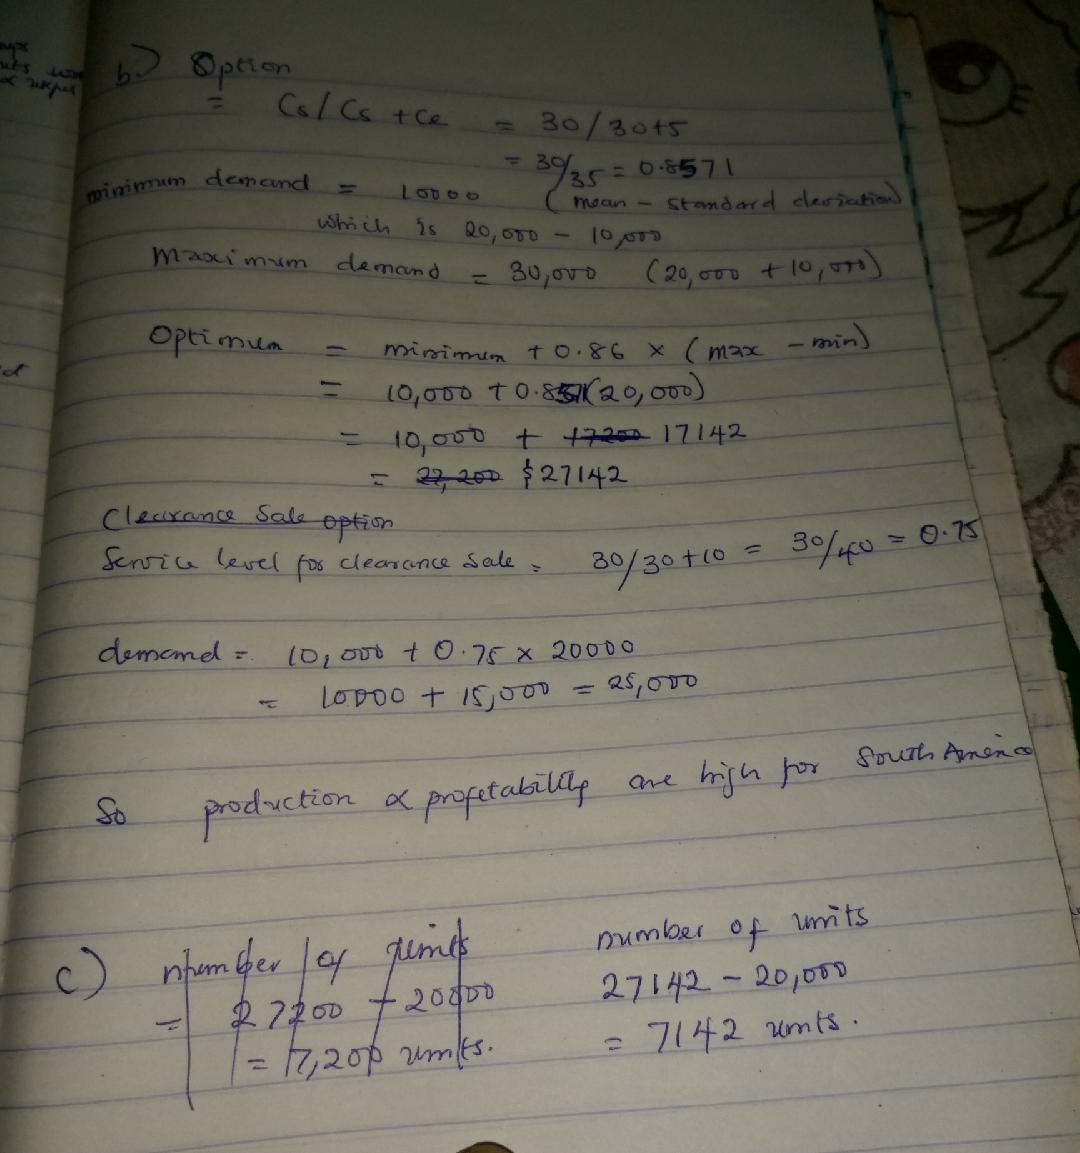 b.) Option
= Cs / Cs + Ce = 30/30+5
= 30/35 = 0.8571
minimum demand = 10000 (mean - standard deviation)
which is 20,000 - 10,000
Maximum demand = 30,000 (20,000 + 10,000)
Optimum = minimum + 0.86 x (max - min)
= 10,000 + 0.8571(20,000)
= 10,000 + 17200 17142
= 27,200 $27142
Clearance Sale option
Service level for clearance sale = 30/30+10 = 30/40 = 0.75
demand = 10,000 + 0.75 x 20000
= 10000 + 15,000 = 25,000
So production & profetability are high for South America
c) number of units
= 27200 - 20000
= 7,200 units.
number of units
27142 - 20,000
= 7142 units.